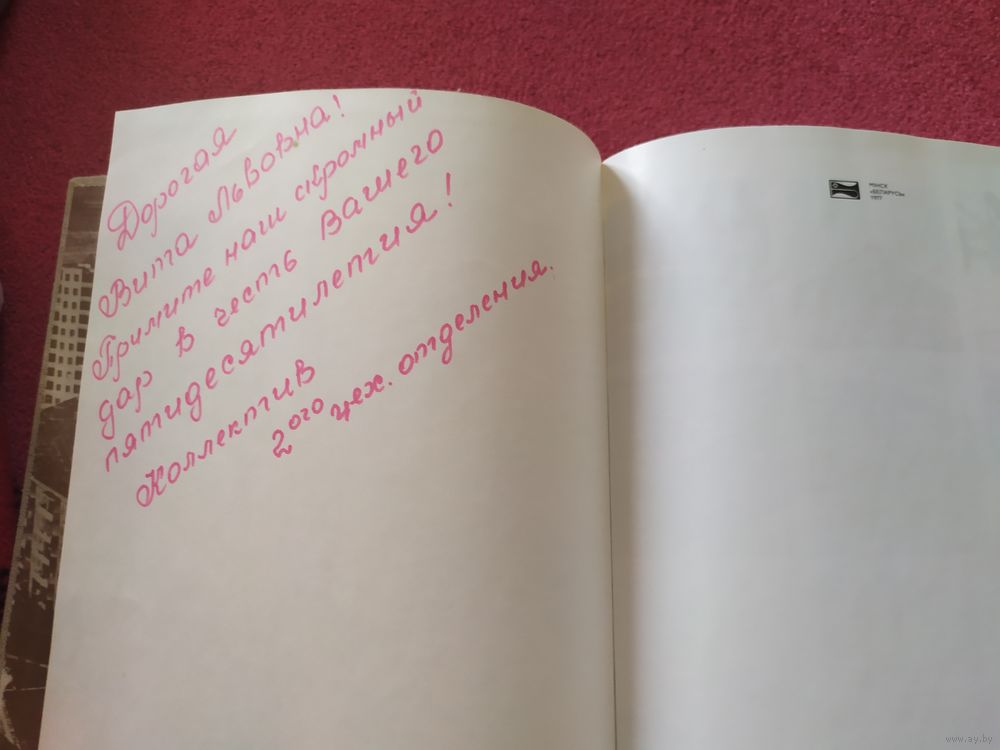 Дорогая
Вита Львовна!
Примите наш скромный
дар в честь Вашего
пятидесятилетия!
Коллектив
2ого цех. отделения.
МІНСК
«БЕЛАРУСЬ»
1977
www.ay.by